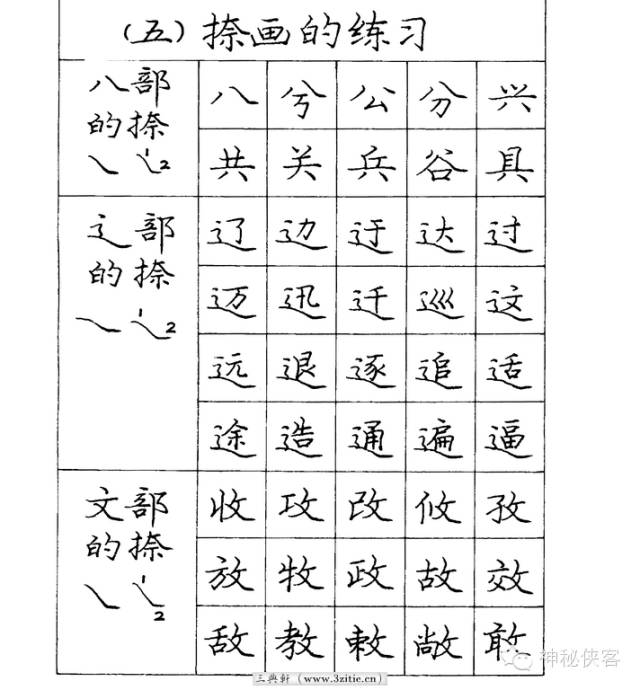 (五)捺画的练习
八部
的捺
1 2
八 兮 公 分 兴
共 关 兵 谷 具
辶部
的捺
1 2
辽 边 迂 达 过
迈 迅 迁 巡 这
远 退 逐 追 适
途 造 通 遍 逼
文部
的捺
1 2
收 攻 改 攸 孜
放 牧 政 故 效
敌 教 敕 敞 敢
神秘侠客
三典軒(www.3zitie.cn)